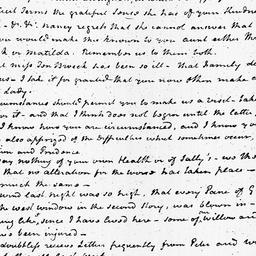 terms the grateful sense she has of your kindness
Nancy regrets that she cannot answer that
you would make this known to you aunt either th
or Matilda. Remember us to them both.
Miss Tom Brock has been so ill - that family de
us - I take it for granted that you now often make a
Lady.
circumstances should permit you to make us a visit - take
for it - and that I think does not begin until the latter
I know how you are circumstanced, and I know you
also apprized of the difficulties which sometimes occur,
and Prudence
say nothing of your own Health or of Sally's - we th
that no alteration for the worse has taken place -
much the same -
wind last night was so high, that every Pane of G
the west window in the second story, was blown in -
any like since I have lived here - some of our Willow an
been injured -
doubtless receive Letters frequently from Peter and w